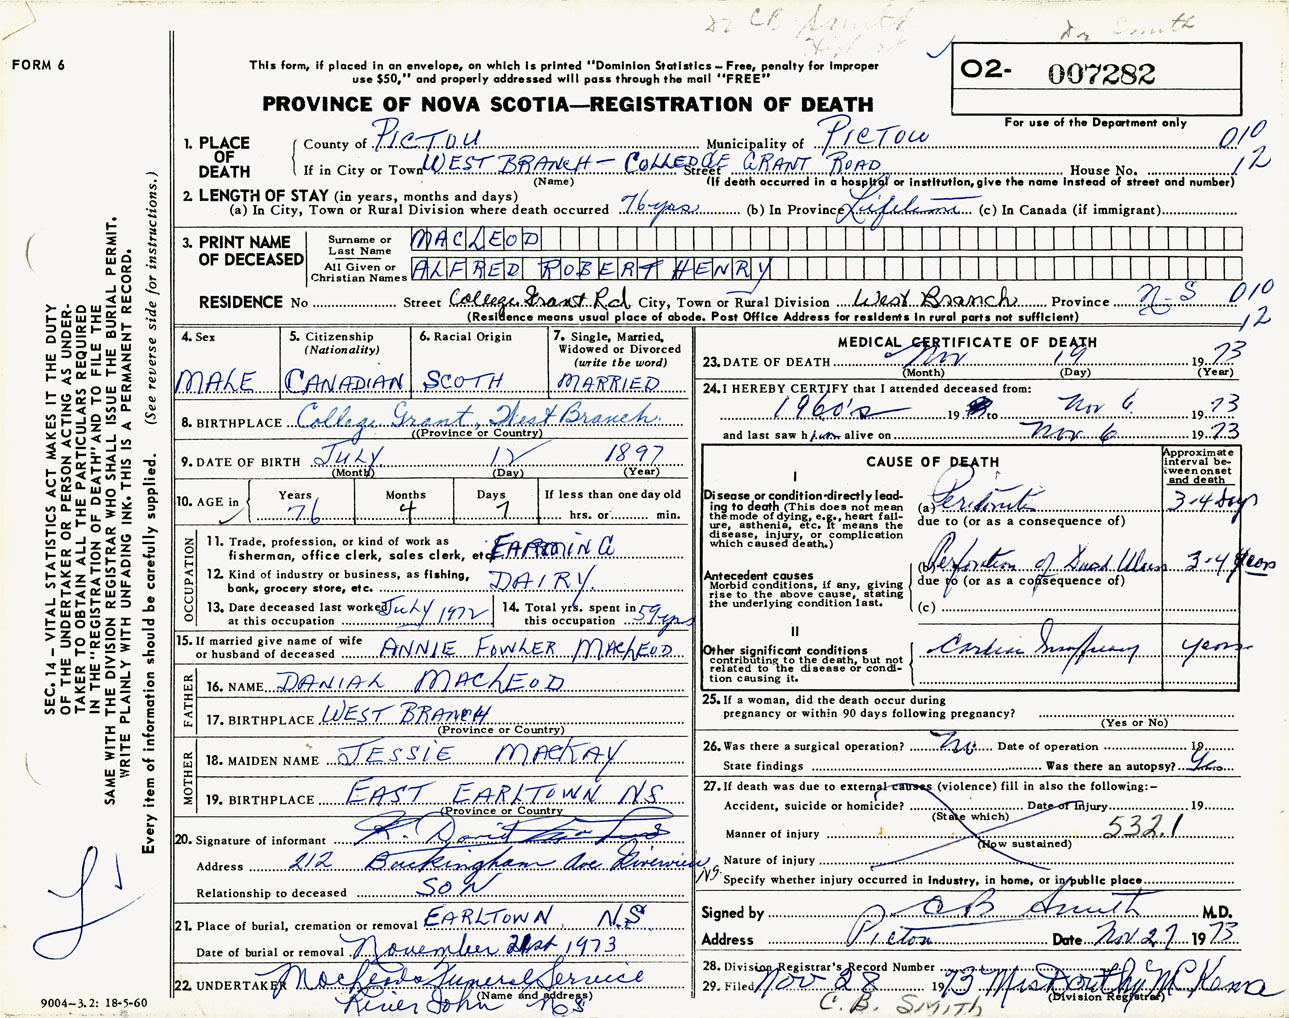 Dr CB Smith Dr Smith
FORM 6
This form, if placed in an envelope, on which is printed "Dominion Statistics – Free, penalty for improper
use $50," and properly addressed will pass through the mail "FREE"
O2- 007282
PROVINCE OF NOVA SCOTIA—REGISTRATION OF DEATH
For use of the Department only
1. PLACE OF DEATH
County of PICTOU Municipality of PICTOU 010
If in City or Town WEST BRANCH – COLLEDGE GRANT ROAD Street House No. 12
(Name) (If death occurred in a hospital or institution, give the name instead of street and number)
2. LENGTH OF STAY (in years, months and days)
(a) In City, Town or Rural Division where death occurred 76 yrs (b) In Province Lifetime (c) In Canada (if immigrant)
3. PRINT NAME OF DECEASED
Surname or Last Name MACLEOD
All Given or Christian Names ALFRED ROBERT HENRY
RESIDENCE No Street College Grant Rd City, Town or Rural Division West Branch Province N-S 010
(Residence means usual place of abode. Post Office Address for residents in rural parts not sufficient) 12
4. Sex MALE
5. Citizenship (Nationality) CANADIAN
6. Racial Origin SCOTH
7. Single, Married, Widowed or Divorced (write the word) MARRIED
8. BIRTHPLACE College Grant, West Branch
(Province or Country)
9. DATE OF BIRTH JULY 12 1897
(Month) (Day) (Year)
10. AGE in Years Months Days If less than one day old
76 4 7 hrs. or min.
OCCUPATION
11. Trade, profession, or kind of work as
fisherman, office clerk, sales clerk, etc. FARMING
12. Kind of industry or business, as fishing,
bank, grocery store, etc. DAIRY.
13. Date deceased last worked at this occupation July 1972
14. Total yrs. spent in this occupation 59 yrs
15. If married give name of wife
or husband of deceased ANNIE FOWLER MACLEOD
FATHER
16. NAME DANIAL MACLEOD
17. BIRTHPLACE WEST BRANCH
(Province or Country)
MOTHER
18. MAIDEN NAME JESSIE MACKAY
19. BIRTHPLACE EAST EARLTOWN NS
(Province or Country)
20. Signature of informant David
Address 212 Buckingham Ave NS.
Relationship to deceased SON
21. Place of burial, cremation or removal EARLTOWN, N.S
Date of burial or removal November 21st 1973
22. UNDERTAKER MacLeods Funeral Service
(Name and address)
River John NS
9004-3.2: 18-5-60
MEDICAL CERTIFICATE OF DEATH
23. DATE OF DEATH Nov 19 1973
(Month) (Day) (Year)
24. I HEREBY CERTIFY that I attended deceased from:
1960's 19 to Nov 6 1973
and last saw him alive on Nov 6 1973
CAUSE OF DEATH
Approximate interval between onset and death
I
Disease or condition directly leading to death (This does not
mean the mode of dying, e.g., heart failure, asthenia, etc. It means the
disease, injury, or complication
which caused death.)
(a) Peritonitis 3-4 days
due to (or as a consequence of)
Antecedent causes
Morbid conditions, if any, giving
rise to the above cause, stating
the underlying condition last.
(b) of Ulcer 3-4
due to (or as a consequence of)
(c)
II
Other significant conditions
contributing to the death, but not
related to the disease or condition causing it.
Cardiac Insufficiency years
25. If a woman, did the death occur during
pregnancy or within 90 days following pregnancy?
(Yes or No)
26. Was there a surgical operation? No Date of operation 19
State findings Was there an autopsy? Yes
27. If death was due to external causes (violence) fill in also the following:–
Accident, suicide or homicide? Date of injury 19
(State which)
Manner of injury 532.1
(How sustained)
Nature of injury
Specify whether injury occurred in industry, in home, or in public place
Signed by CB Smith M.D.
Address Pictou Date Nov 27 1973
28. Division Registrar's Record Number
29. Filed Nov 28 1973 Mrs Dorothy McKenna
(Division Registrar)
C. B. SMITH
SEC. 14 – VITAL STATISTICS ACT MAKES IT THE DUTY
OF THE UNDERTAKER OR PERSON ACTING AS UNDER-
TAKER TO OBTAIN ALL THE PARTICULARS REQUIRED
IN THE "REGISTRATION OF DEATH" AND TO FILE THE
SAME WITH THE DIVISION REGISTRAR WHO SHALL ISSUE THE BURIAL PERMIT.
WRITE PLAINLY WITH UNFADING INK. THIS IS A PERMANENT RECORD.
Every item of information should be carefully supplied. (See reverse side for instructions.)